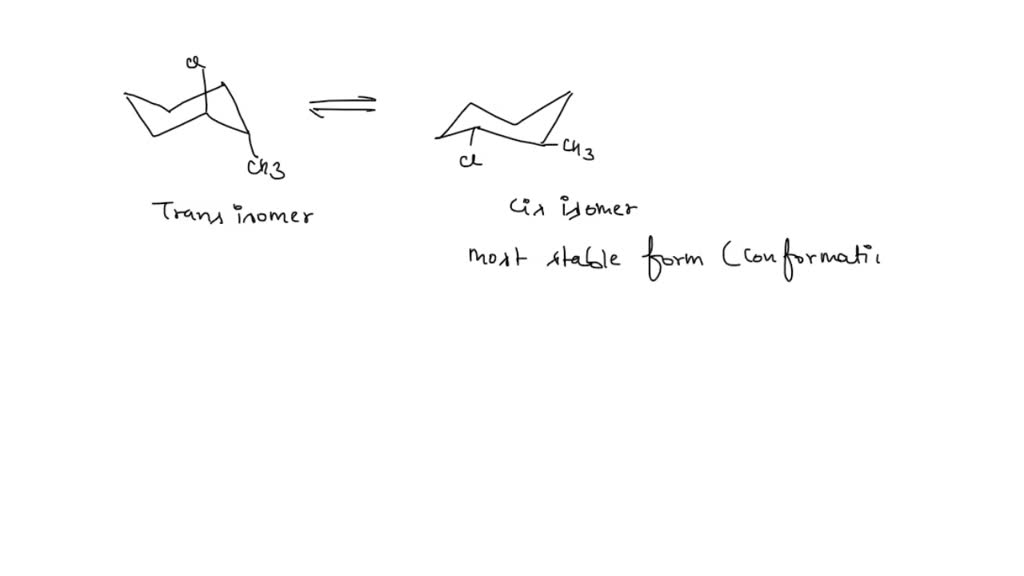 Cl
CH3
CH3
Cl
Trans isomer
Cis isomer
most stable form (conformati